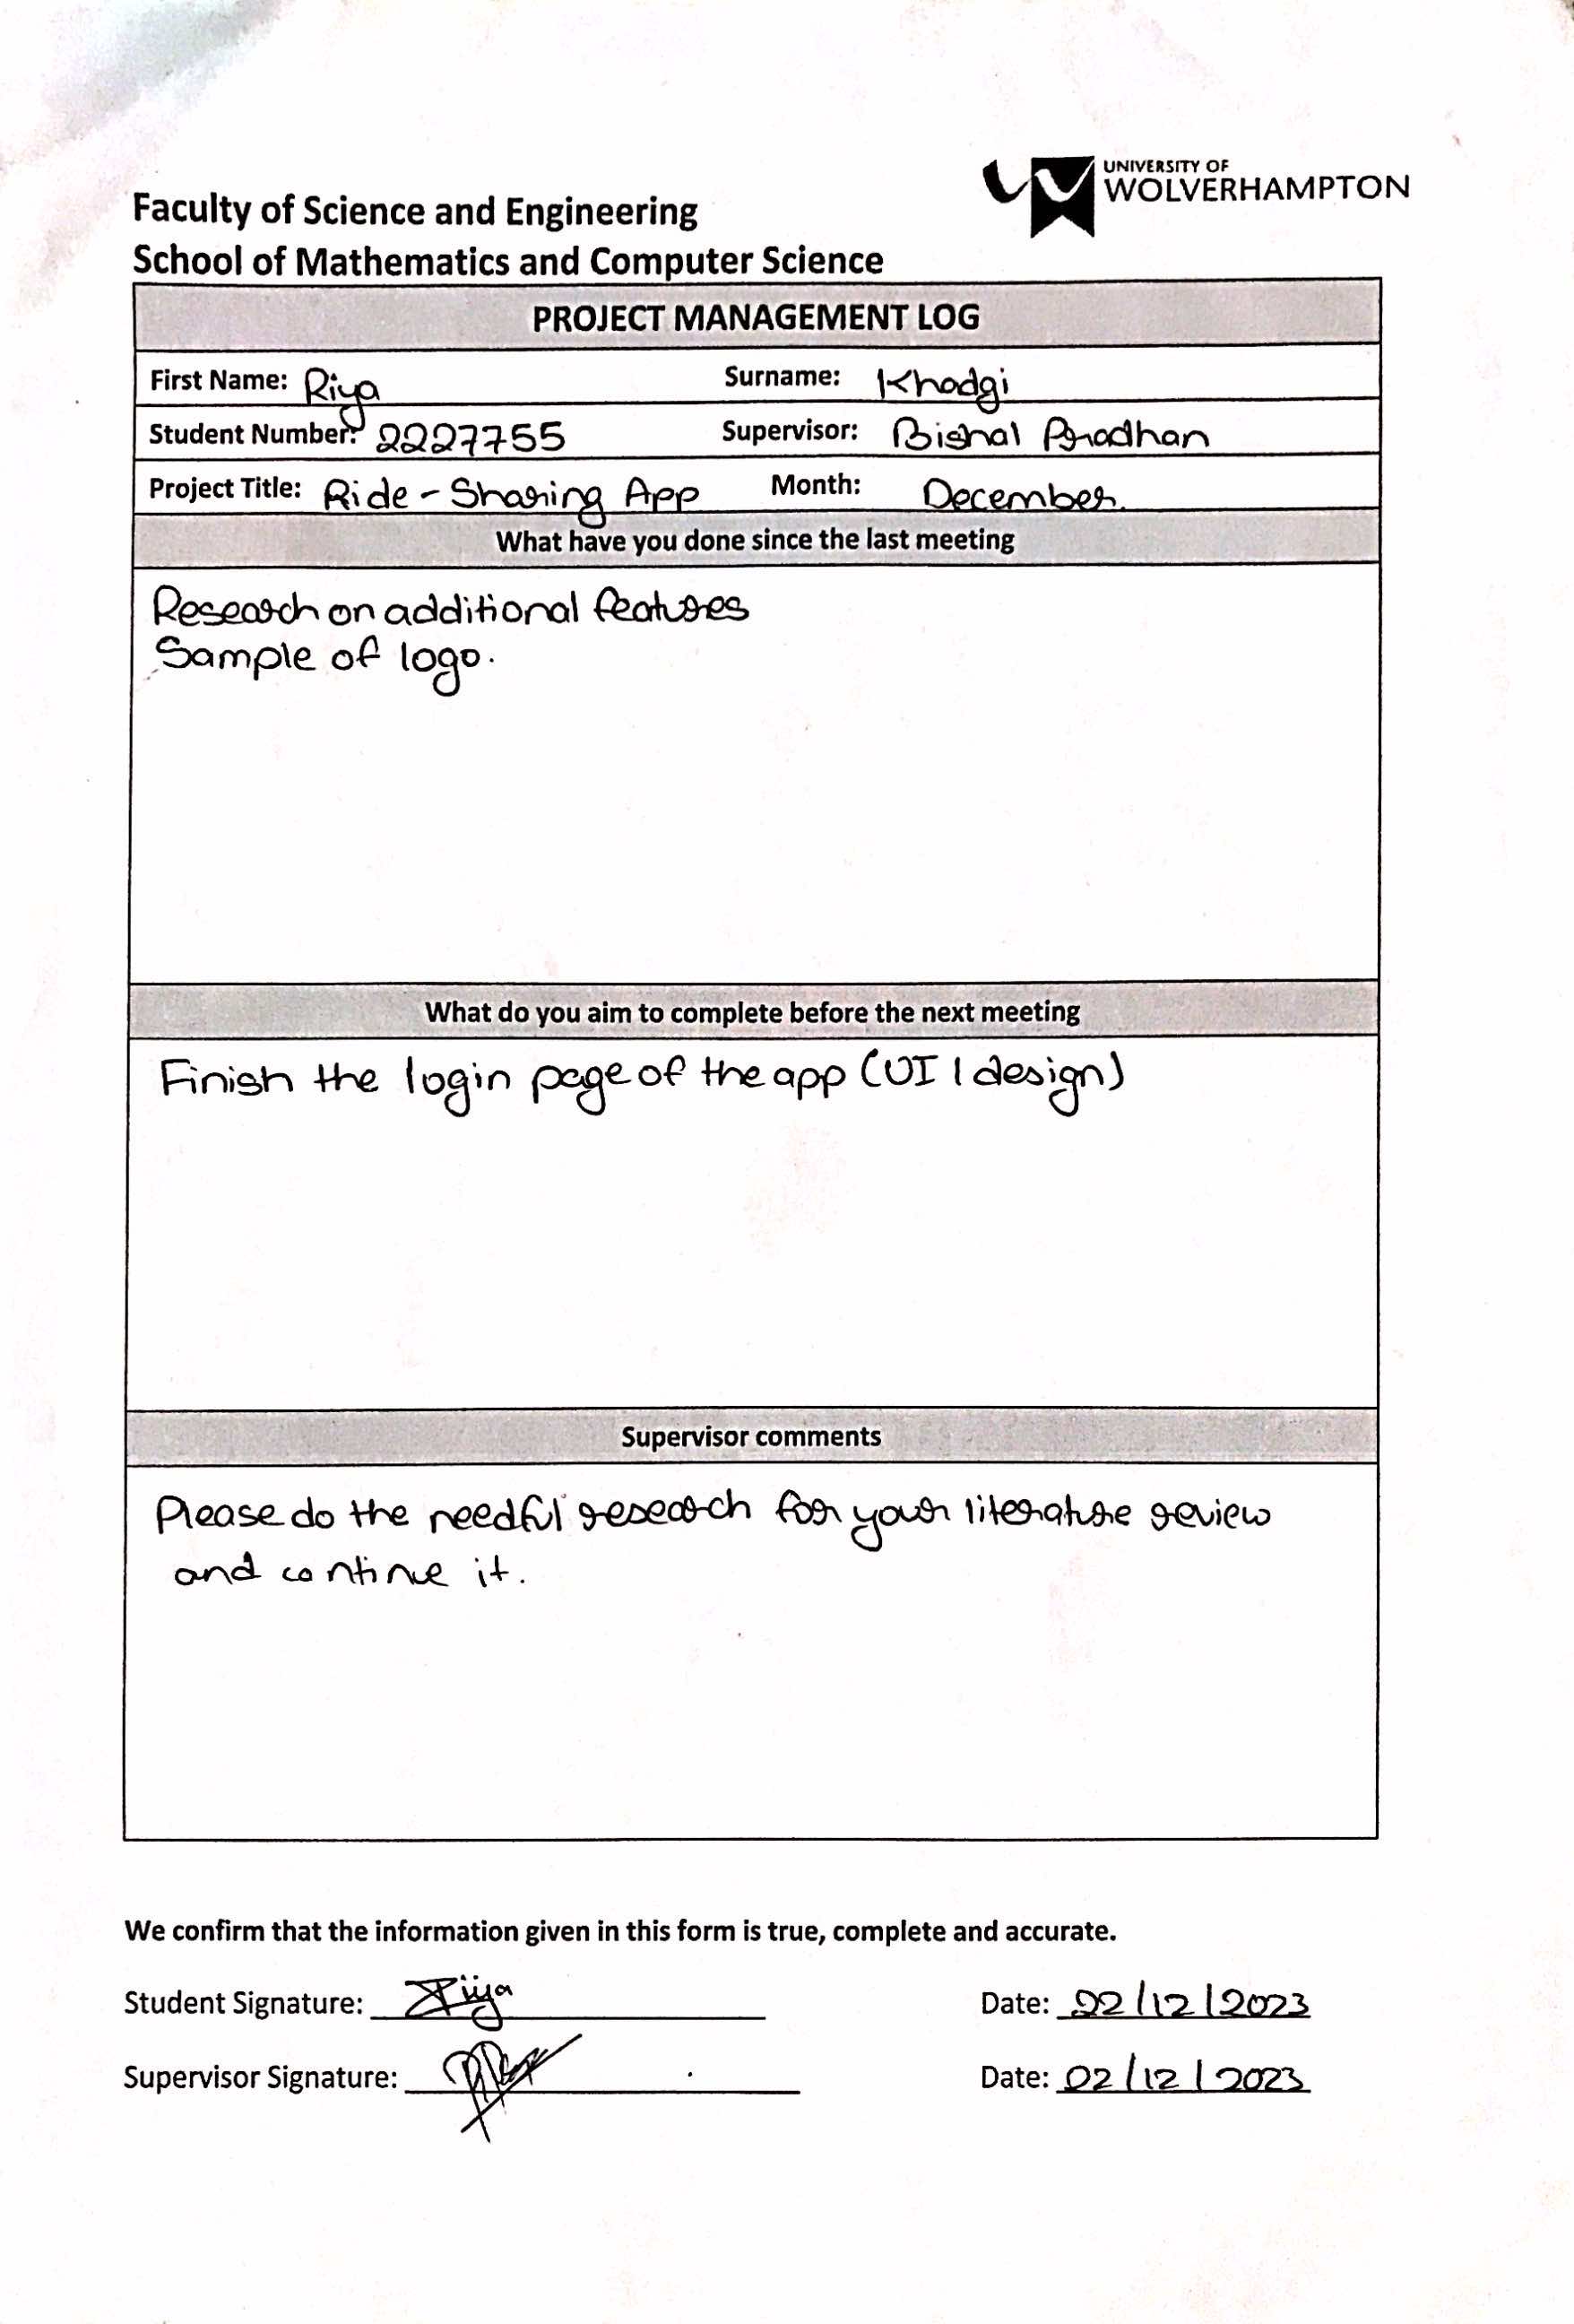 UNIVERSITY OF
WOLVERHAMPTON
Faculty of Science and Engineering
School of Mathematics and Computer Science
PROJECT MANAGEMENT LOG
First Name: Riya Surname: Khadgi
Student Number: 2227755 Supervisor: Bishal Pradhan
Project Title: Ride - Sharing App Month: December.
What have you done since the last meeting
Research on additional features
Sample of logo.
What do you aim to complete before the next meeting
Finish the login page of the app (UI / design)
Supervisor comments
Please do the needful research for your literature review
and continue it.
We confirm that the information given in this form is true, complete and accurate.
Student Signature: Riya Date: 02/12/2023
Supervisor Signature: Date: 02/12/2023